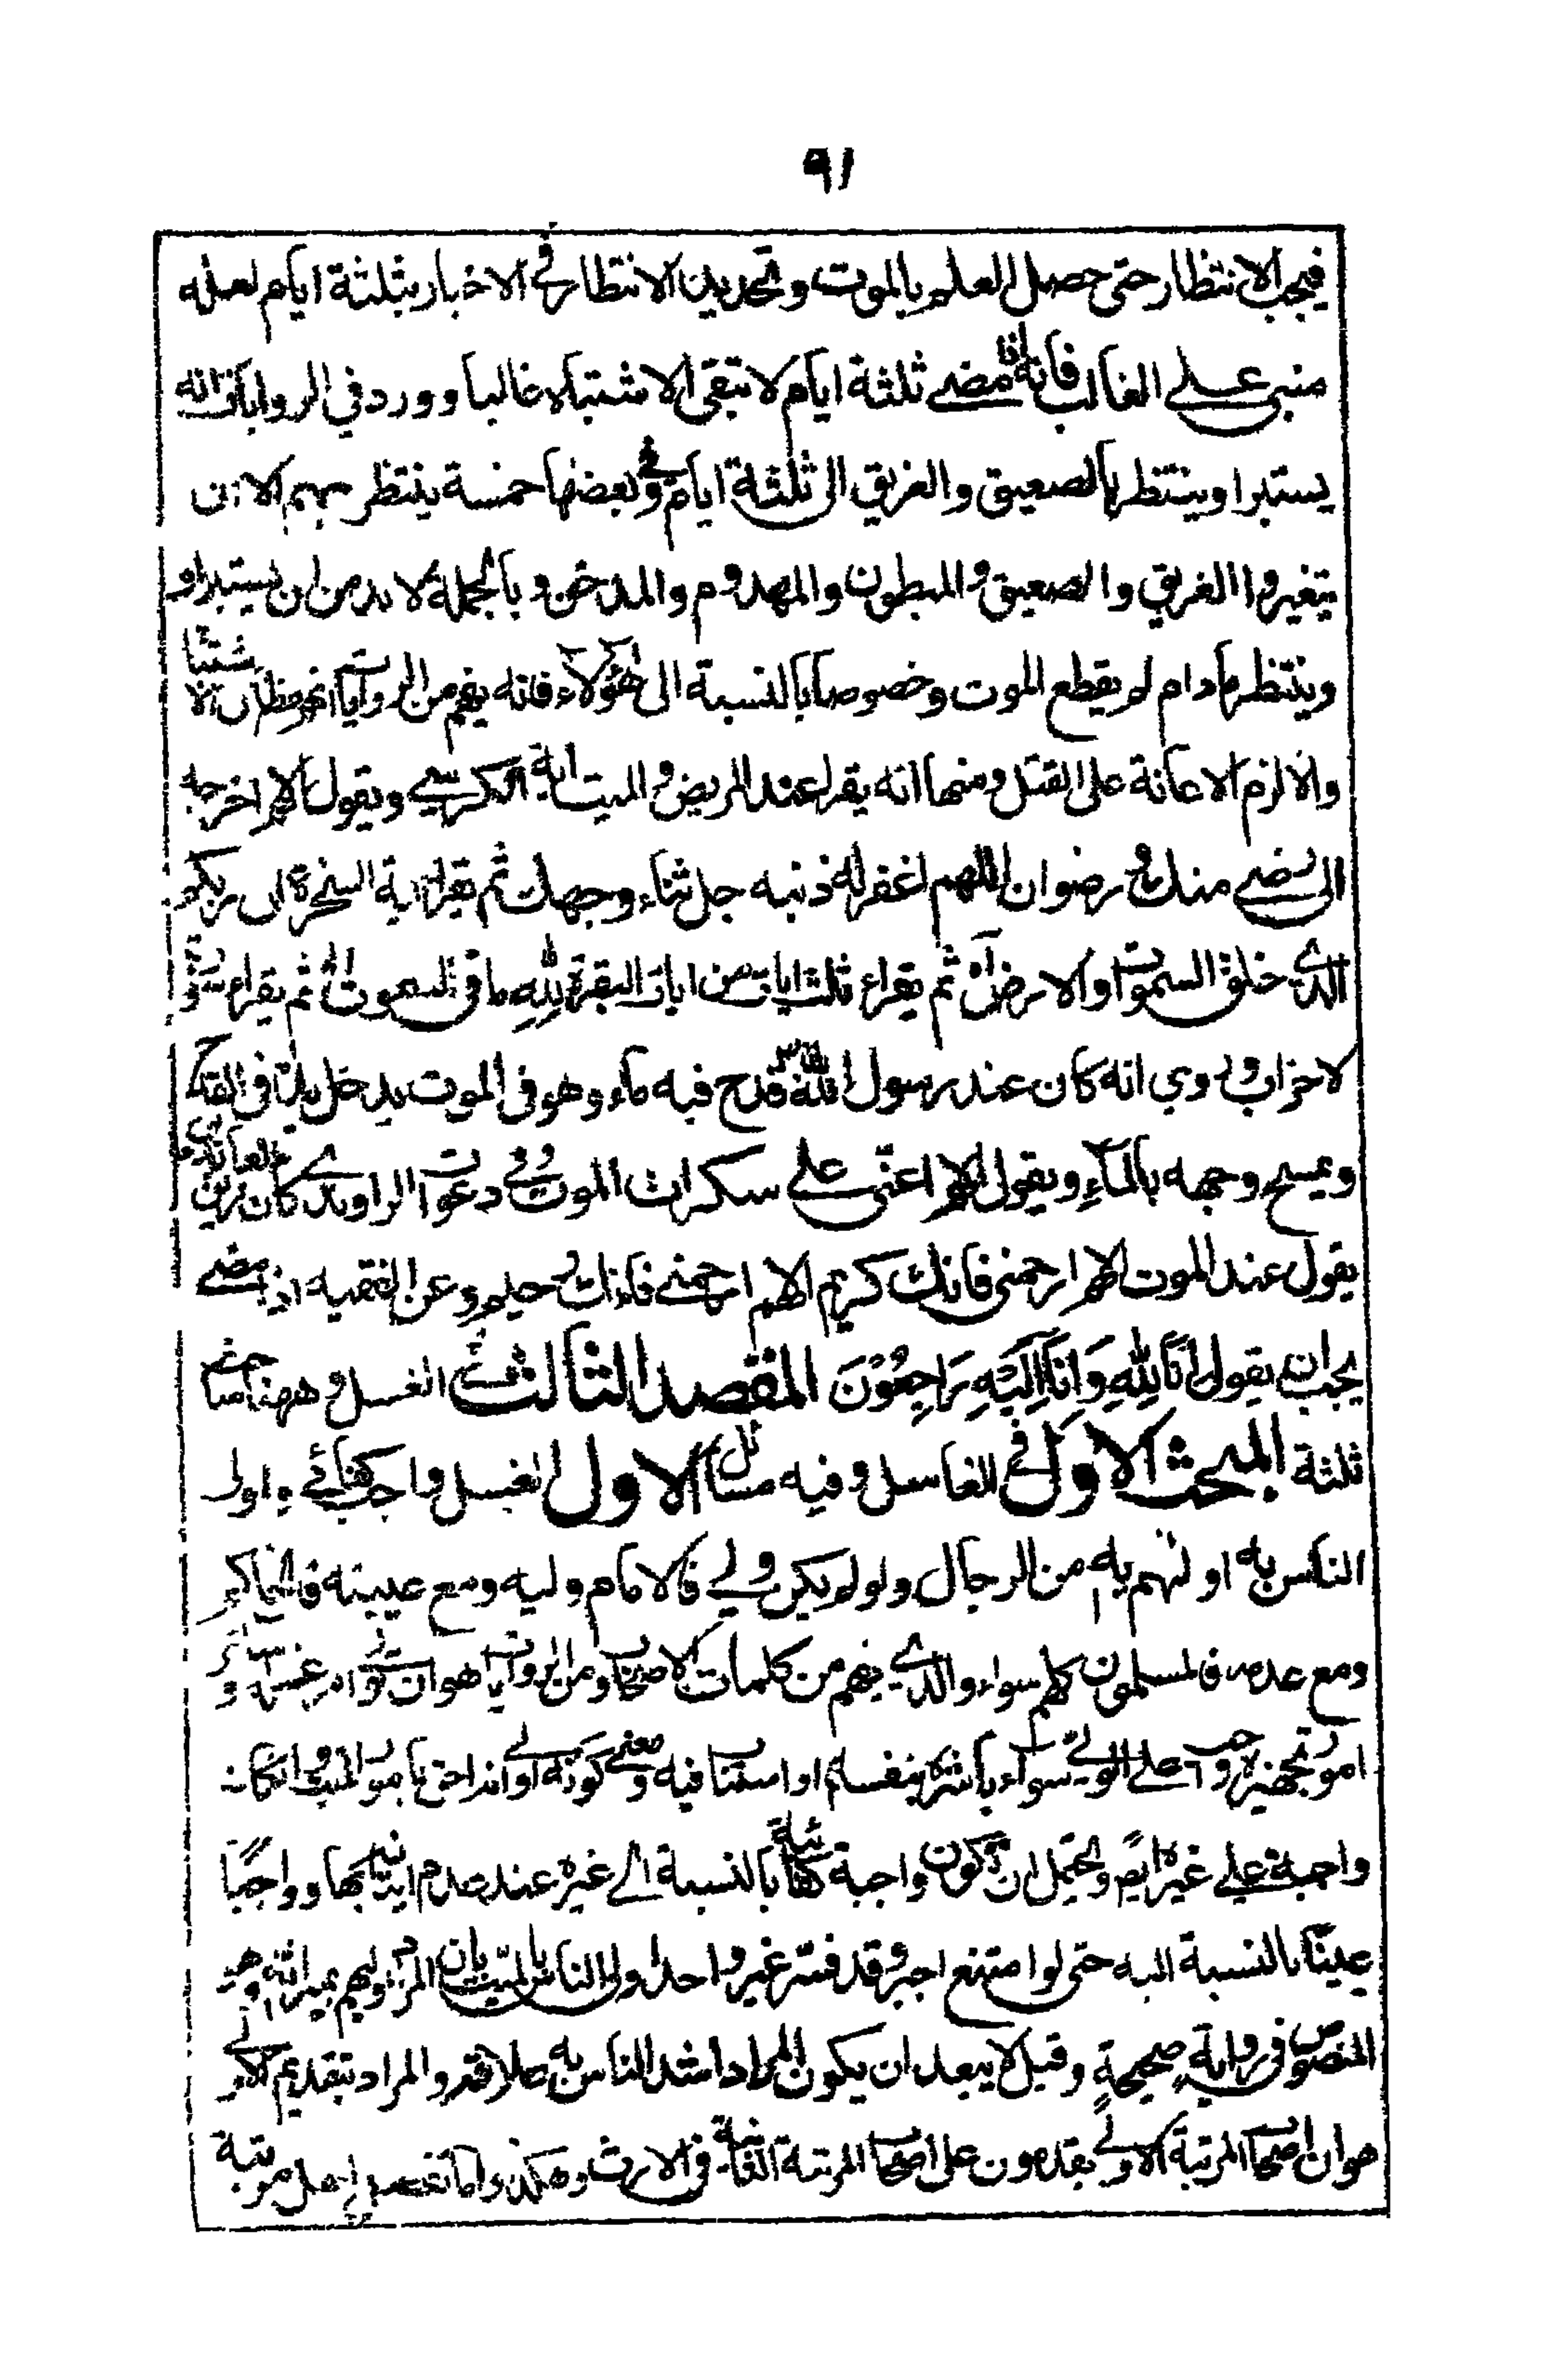 ٩١
فيجب الانتظار حتى حصل العلم بالموت وتحديد الانتظار في الاخبار بثلثة ايام لعله
مبنى على الغالب فانه اذا مضى ثلثة ايام لا تبقى الاشتباه غالبا وورد في الروايات انه
يستبرا وينتظر بالصعيق والغريق الى ثلثة ايام وفي بعضها خمسة ينتظر بهم الا ان
يتغيروا الغريق والصعيق والمبطون والمهدوم والمدخن وبالجملة لا بد من ان يستبراو
وينتظر مادام لم يقطع الموت وخصوصا بالنسبة الى هؤلاء فانه يفهم من الروايات انهم مظان الاشتبا
والا لزم الاعانة على القتل ومنها انه يقرا عند المريض والميت اية الكرسي ويقول اللهم اخرجه
الى رضى منك ورضوان اللهم اغفر له ذنبه جل ثناء وجهك ثم يقرا اية السخرة ان ربكم
الذي خلق السموات والارض اه ثم يقراء ثلث ايات من ايات البقرة لله ما في السموات الخ ثم يقراء سورة
لاحزاب وروي انه كان عند رسول الله قدح فيه ماء وهو في الموت يدخل يده في القدح
ويمسح وجهه بالماء ويقول اللهم اعنّى على سكرات الموت وفي دعوات الراوندي كان زين العابدين
يقول عند الموت اللهم ارحمنى فانك كريم اللهم ارحمنى فانك رحيم وعن الفقيه اذا مضى
يجب ان يقول اِنَّا لِلّٰهِ وَاِنَّا اِلَيْهِ رَاجِعُوْنَ المقصد الثالث في الغسل وههنا مباحث
ثلثة المبحث الاول في الغاسل وفيه مسائل الاول الغسل واجب كفائي واولى
الناس به اولهم به من الرجال ولو لم يكن ولي فالامام وليه ومع غيبته فالحاكم
ومع عدمه فالمسلمون كلهم سواء والذي يفهم من كلمات الاصحاب ومن الروايات هو ان تولى امر غسله وسائر
امور تجهيزه واجب على الولي سواء باشره بنفسه او استناب فيه ومعنى كونه اولى انه احق بامور الميت وان كانت
واجبة على غيره ايضا ويحتمل ان تكون واجبة كفائية بالنسبة الى غيره عند عدم اتيانه بها وواجبًا
عينيّا بالنسبة اليه حتى لو امتنع اجبر وقد فسّر غير واحد اولى الناس بالميّت بان المراد اوليهم بميراثه وهو
المنصوص في رواية صحيحة وقيل لا يبعد ان يكون المراد اشد الناس به علاقة والمراد بتقديم الاولى
هو ان اصحاب المرتبة الاولى يقدمون على اصحاب المرتبة الثانية في الارث وهكذا واما تفصيل اهل مرتبة